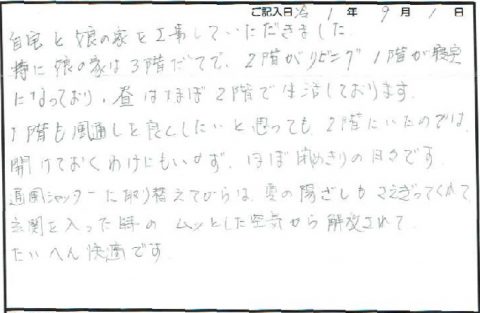 ご記入日 1年 9月 1日
自宅と娘の家を工事していただきました。
特に娘の家は3階だてで、2階がリビング1階が寝室
になっており、昼はほぼ2階で生活しております。
1階も風通しを良くしたいと思っても2階にいたのでは、
開けておくわけにもいかず、ほぼ閉めきりの日々です。
通風シャッターに取り替えてからは、夏の陽ざしもさえぎってくれて
玄関を入った時のムッとした空気から解放されて
たいへん快適です。